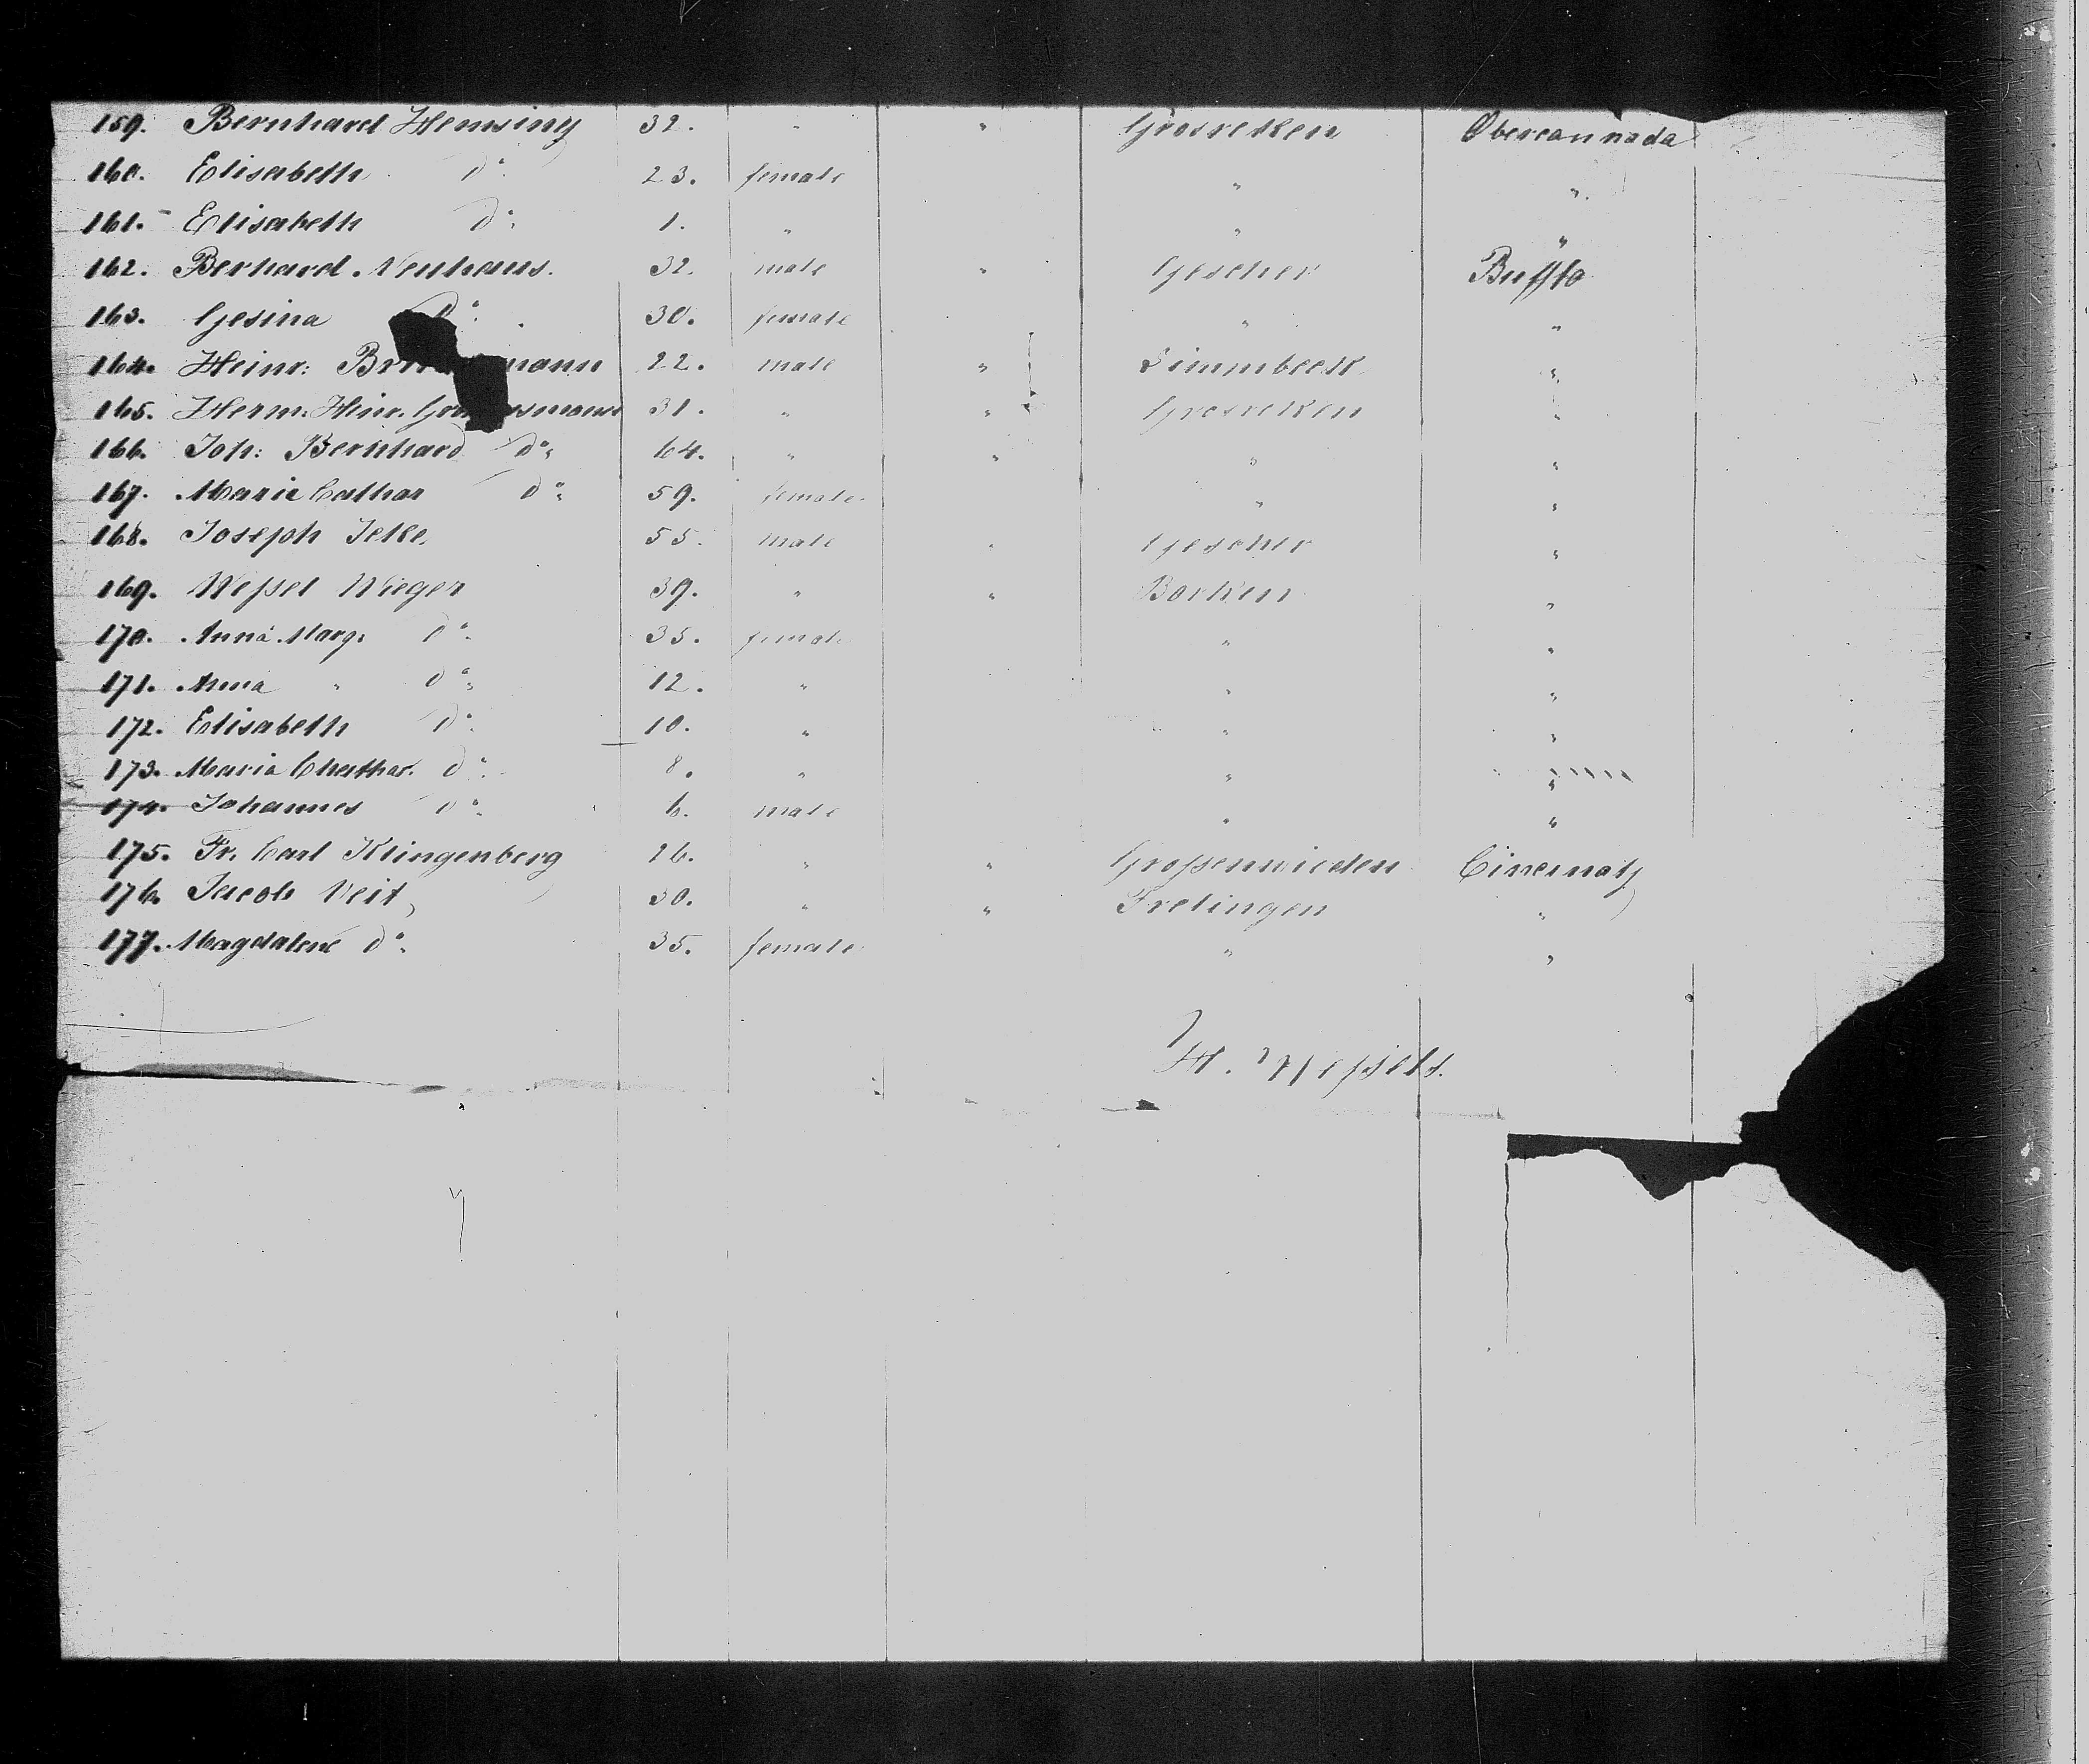 159. Bernhard Hemsing 32. " " Grosreken Obercannada
160. Elisabeth do. 23. female " ".
161. Elisabeth do. 1. " " "
162. Berhard Neuhaus. 32. male " Gescher Bufflo
163. Gesina do. 30. female " "
164. Heinr: mann 22. male " "
165. Herm. Heinr. 31. " " Grosreken "
166. Joh: Bernhard do. 64. " " " "
167. Marie Cathar do. 59. female. " "
168. Joseph 55. male " Gescher "
169. Weſsel Wieger 39. " " Borken "
170. Anna Marg: do. 35. female " "
171. Anna " do. 12. " " "
172. Elisabeth do. 10. " " "
173. Maria Chathar. do. 8. " " "
174. Johannes do. 6. male " "
175. Fr. Carl Klingenberg 26. " " Groſsenwieden Cincinaty
176. Jacob Veit, 30. " " Frelingen "
177. Magdalene do. 35. female " "
H. Weſsels.